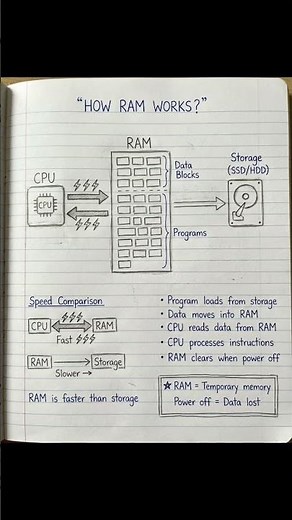 "HOW RAM WORKS?"
RAM
CPU
CPU
Data
Blocks
Programs
Storage
(SSD/HDD)
Speed Comparison
CPU
RAM
Fast
RAM
Storage
Slower →
RAM is faster than storage
• Program loads from storage
• Data moves into RAM
• CPU reads data from RAM
• CPU processes instructions
• RAM clears when power off
★ RAM = Temporary memory
Power off = Data lost